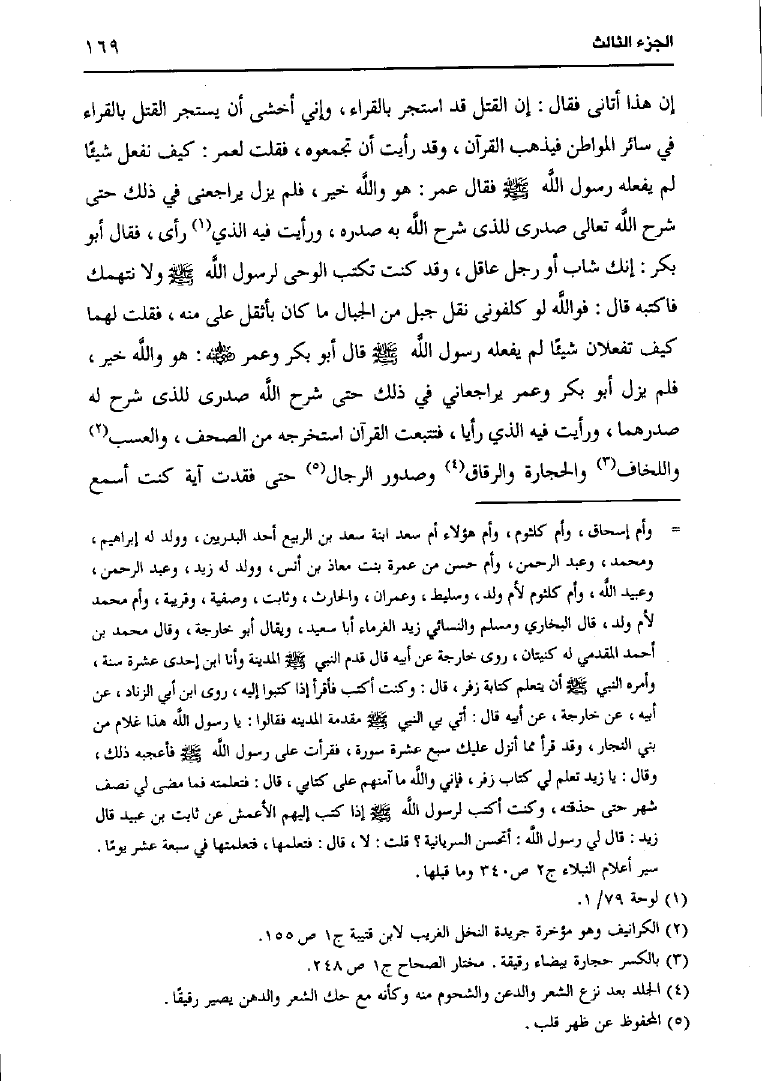 الجزء الثالث ١٦٩
إن هذا أتانى فقال : إن القتل قد استجر بالقراء ، وإني أخشى أن يستجر القتل بالقراء
في سائر المواطن فيذهب القرآن ، وقد رأيت أن تجمعوه ، فقلت لعمر : كيف نفعل شيئًا
لم يفعله رسول اللَّه ﷺ فقال عمر : هو واللَّه خير ، فلم يزل يراجعنى في ذلك حتى
شرح اللَّه تعالى صدرى للذى شرح اللَّه به صدره ، ورأيت فيه الذي(١) رأى ، فقال أبو
بكر : إنك شاب أو رجل عاقل ، وقد كنت تكتب الوحى لرسول اللَّه ﷺ ولا نتهمك
فاكتبه قال : فواللَّه لو كلفونى نقل جبل من الجبال ما كان بأثقل على منه ، فقلت لهما
كيف تفعلان شيئًا لم يفعله رسول اللَّه ﷺ قال أبو بكر وعمر رضي الله عنهما : هو واللَّه خير ،
فلم يزل أبو بكر وعمر يراجعاني في ذلك حتى شرح اللَّه صدرى للذى شرح له
صدرهما ، ورأيت فيه الذي رأيا ، فتتبعت القرآن استخرجه من الصحف ، والعسب(٢)
واللخاف(٣) والحجارة والرقاق(٤) وصدور الرجال(٥) حتى فقدت آية كنت أسمع
= وأم إسحاق ، وأم كلثوم ، وأم هؤلاء أم سعد ابنة سعد بن الربيع أحد البدريين ، وولد له إبراهيم ،
ومحمد ، وعبد الرحمن ، وأم حسن من عمرة بنت معاذ بن أنس ، وولد له زيد ، وعبد الرحمن ،
وعبيد اللَّه ، وأم كلثوم لأم ولد ، وسليط ، وعمران ، والحارث ، وثابت ، وصفية ، وقريبة ، وأم محمد
لأم ولد ، قال البخاري ومسلم والنسائي زيد الغرماء أبا سعيد ، ويقال أبو خارجة ، وقال محمد بن
أحمد المقدمي له كنيتان ، روى خارجة عن أبيه قال قدم النبي ﷺ المدينة وأنا ابن إحدى عشرة سنة ،
وأمره النبي ﷺ أن يتعلم كتابة زفر ، قال : وكنت أكتب فأقرأ إذا كتبوا إليه ، روى ابن أبي الزناد ، عن
أبيه ، عن خارجة ، عن أبيه قال : أتي بي النبي ﷺ مقدمة المدينه فقالوا : يا رسول اللَّه هذا غلام من
بني النجار ، وقد قرأ مما أنزل عليك سبع عشرة سورة ، فقرأت على رسول اللَّه ﷺ فأعجبه ذلك ،
وقال : يا زيد تعلم لي كتاب زفر ، فإني واللَّه ما آمنهم على كتابي ، قال : فتعلمته فما مضى لي نصف
شهر حتى حذقته ، وكنت أكتب لرسول اللَّه ﷺ إذا كتب إليهم الأعمش عن ثابت بن عبيد قال
زيد : قال لي رسول اللَّه : أتحسن السريانية ؟ قلت : لا ، قال : فتعلمها ، فتعلمتها في سبعة عشر يومًا .
سير أعلام النبلاء ج٢ ص٣٤٠ وما قبلها .
(١) لوحة ٧٩/ ١.
(٢) الكرانيف وهو مؤخرة جريدة النخل الغريب لابن قتيبة ج١ ص١٥٥.
(٣) بالكسر حجارة بيضاء رقيقة . مختار الصحاح ج١ ص٢٤٨.
(٤) الجلد بعد نزع الشعر والدعن والشحوم منه وكأنه مع حك الشعر والدهن يصير رقيقًا .
(٥) المحفوظ عن ظهر قلب .